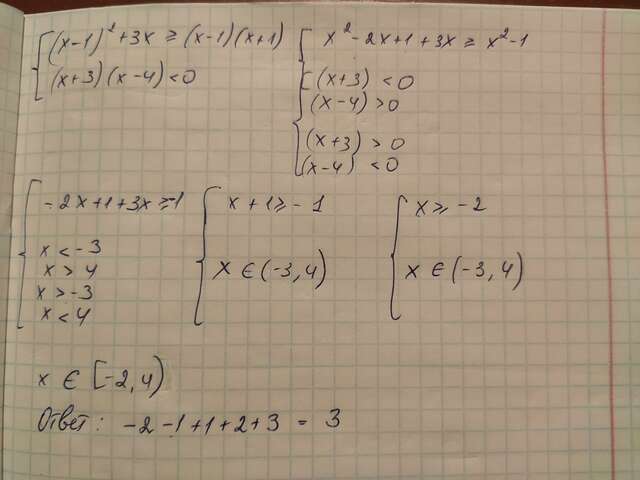 (x-1)² + 3x ≥ (x-1)(x+1)
(x+3)(x-4) < 0
x² - 2x + 1 + 3x ≥ x² - 1
(x+3) < 0
(x-4) > 0
(x+3) > 0
(x-4) < 0
-2x + 1 + 3x ≥ -1
x < -3
x > 4
x > -3
x < 4
x + 1 ≥ - 1
x ∈ (-3, 4)
x ≥ -2
x ∈ (-3, 4)
x ∈ [-2, 4)
Ответ: -2 -1 +1 +2 +3 = 3